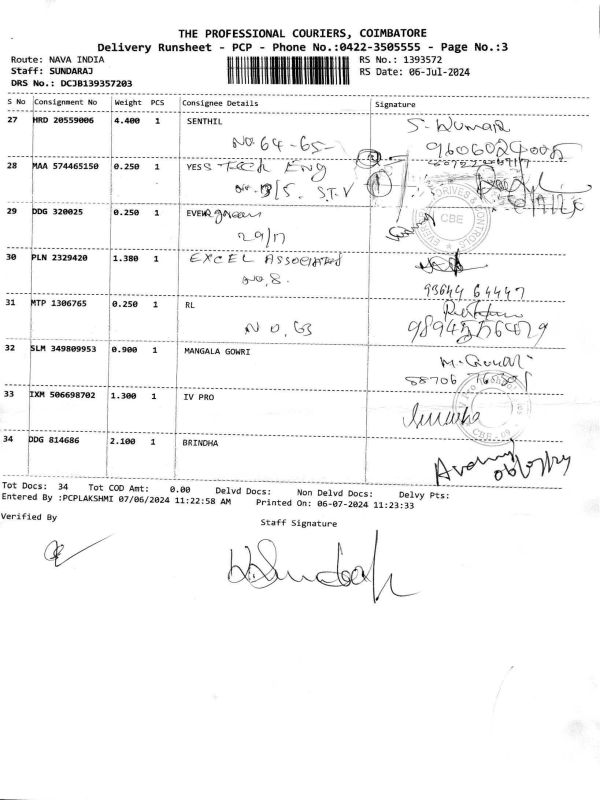 THE PROFESSIONAL COURIERS, COIMBATORE
Delivery Runsheet - PCP - Phone No.:0422-3505555 - Page No.:3
Route: NAVA INDIA
RS No.: 1393572
Staff: SUNDARAJ
RS Date: 06-Jul-2024
DRS No.: DCJB139357203
S No Consignment No Weight PCS Consignee Details Signature
27 HRD 20559006 4.400 1 SENTHIL S. Kumar
No 64-65-
28 MAA 574465150 0.250 1 YESS Tech Eng
S.T.V
29 DDG 320025 0.250 1 EVERgreen
29/17
CBE
30 PLN 2329420 1.380 1 EXCEL ASSOCIATES
No. 8.
93644 64447
31 MTP 1306765 0.250 1 RL
NO. 63
32 SLM 349809953 0.900 1 MANGALA GOWRI M. Gowri
33 IXM 506698702 1.300 1 IV PRO
34 DDG 814686 2.100 1 BRINDHA
06/07/24
Tot Docs: 34 Tot COD Amt: 0.00 Delvd Docs: Non Delvd Docs: Delvy Pts:
Entered By :PCPLAKSHMI 07/06/2024 11:22:58 AM Printed On: 06-07-2024 11:23:33
Verified By
Staff Signature